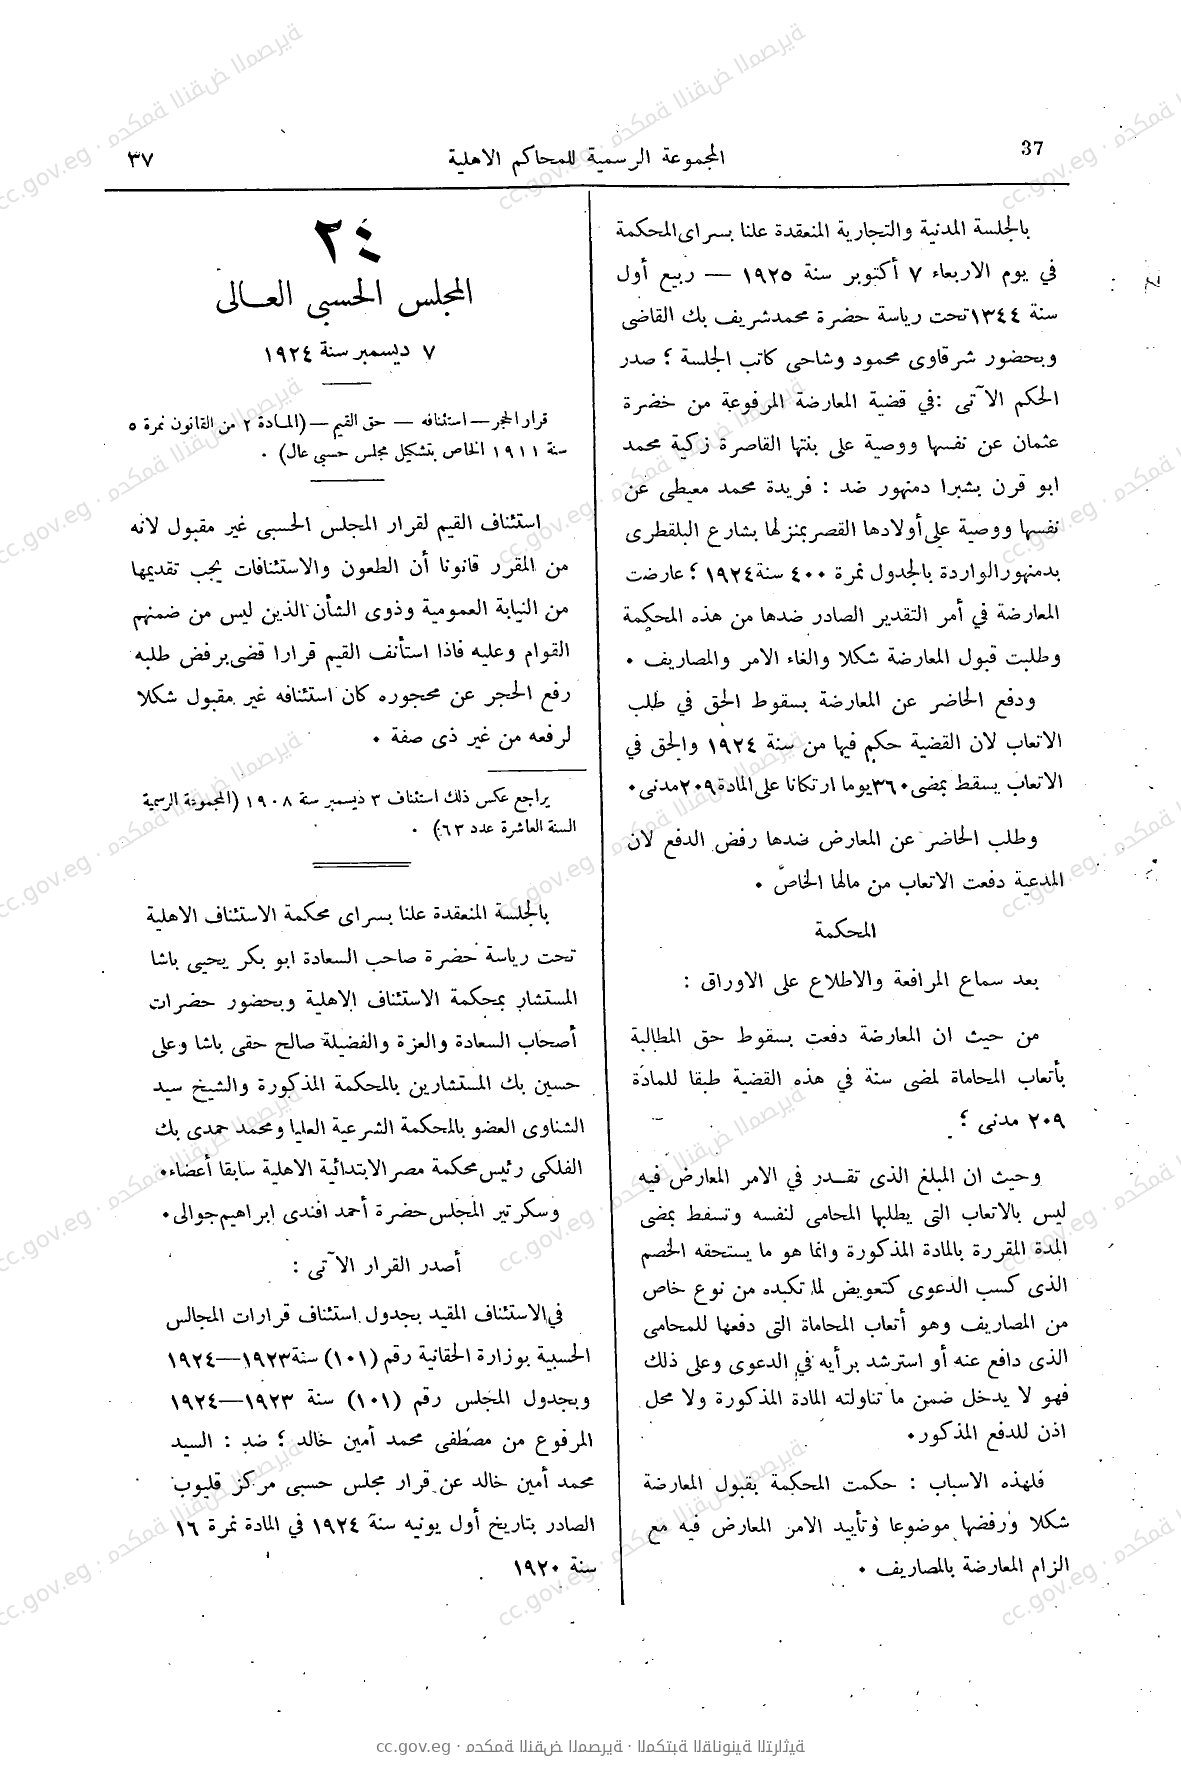 37
المجموعة الرسمية للمحاكم الاهلية
٣٧
بالجلسة المدنية والتجارية المنعقدة علنا بسراى المحكمة
في يوم الاربعاء ٧ أكتوبر سنة ١٩٢٥ — ربيع أول
سنة ١٣٤٤ تحت رياسة حضرة محمد شريف بك القاضى
وبحضور شرقاوى محمود وشاحى كاتب الجلسة ؛ صدر
الحكم الآتى : في قضية المعارضة المرفوعة من خضرة
عثمان عن نفسها ووصية على بنتها القاصرة زكية محمد
ابو قرن بشبرا دمنهور ضد : فريدة محمد معيطى عن
نفسها ووصية على أولادها القصر بمنزلها بشارع البلقطرى
بدمنهور الواردة بالجدول نمرة ٤٠٠ سنة ١٩٢٤ ؛ عارضت
المعارضة في أمر التقدير الصادر ضدها من هذه المحكمة
وطلبت قبول المعارضة شكلا والغاء الامر والمصاريف .
ودفع الحاضر عن المعارضة بسقوط الحق في طلب
الاتعاب لان القضية حكم فيها من سنة ١٩٢٤ والحق في
الاتعاب يسقط بمضى ٣٦٠ يوما ارتكانا على المادة ٢٠٩ مدنى .
وطلب الحاضر عن المعارض ضدها رفض الدفع لان
المدعية دفعت الاتعاب من مالها الخاص .
المحكمة
بعد سماع المرافعة والاطلاع على الاوراق :
من حيث ان المعارضة دفعت بسقوط حق المطالبة
بأتعاب المحاماة لمضى سنة في هذه القضية طبقا للمادة
٢٠٩ مدنى ؛
وحيث ان المبلغ الذى تقدر في الامر المعارض فيه
ليس بالاتعاب التى يطلبها المحامى لنفسه وتسقط بمضى
المدة المقررة بالمادة المذكورة وانما هو ما يستحقه الخصم
الذى كسب الدعوى كتعويض لما تكبده من نوع خاص
من المصاريف وهو أتعاب المحاماة التى دفعها للمحامى
الذى دافع عنه أو استرشد برأيه في الدعوى وعلى ذلك
فهو لا يدخل ضمن ما تناولته المادة المذكورة ولا محل
اذن للدفع المذكور .
فلهذه الاسباب : حكمت المحكمة بقبول المعارضة
شكلا ورفضها موضوعا وتأييد الامر المعارض فيه مع
الزام المعارضة بالمصاريف .
٢٤
المجلس الحسبى العالى
٧ ديسمبر سنة ١٩٢٤
قرار الحجر — استئنافه — حق القيم — (المادة ٢ من القانون نمرة ٥
سنة ١٩١١ الخاص بتشكيل مجلس حسبى عال) .
استئناف القيم لقرار المجلس الحسبى غير مقبول لانه
من المقرر قانونا أن الطعون والاستئنافات يجب تقديمها
من النيابة العمومية وذوى الشأن الذين ليس من ضمنهم
القوام وعليه فاذا استأنف القيم قرارا قضى برفض طلبه
رفع الحجر عن محجوره كان استئنافه غير مقبول شكلا
لرفعه من غير ذى صفة .
يراجع عكس ذلك استئناف ٣ ديسمبر سنة ١٩٠٨ (المجموعة الرسمية
السنة العاشرة عدد ٦٣) .
بالجلسة المنعقدة علنا بسراى محكمة الاستئناف الاهلية
تحت رياسة حضرة صاحب السعادة ابو بكر يحيى باشا
المستشار بمحكمة الاستئناف الاهلية وبحضور حضرات
أصحاب السعادة والعزة والفضيلة صالح حقى باشا وعلى
حسين بك المستشارين بالمحكمة المذكورة والشيخ سيد
الشناوى العضو بالمحكمة الشرعية العليا ومحمد حمدى بك
الفلكى رئيس محكمة مصر الابتدائية الاهلية سابقا أعضاء .
وسكرتير المجلس حضرة أحمد افندى ابراهيم جوالى .
أصدر القرار الآتى :
في الاستئناف المقيد بجدول استئناف قرارات المجالس
الحسبية بوزارة الحقانية رقم (١٠١) سنة ١٩٢٣—١٩٢٤
وبجدول المجلس رقم (١٠١) سنة ١٩٢٣—١٩٢٤
المرفوع من مصطفى محمد أمين خالد ؛ ضد : السيد
محمد أمين خالد عن قرار مجلس حسبى مركز قليوب
الصادر بتاريخ أول يونيه سنة ١٩٢٤ في المادة نمرة ١٦
سنة ١٩٢٠
cc.gov.eg · محكمة النقض المصرية · المكتبة القانونية التراثية